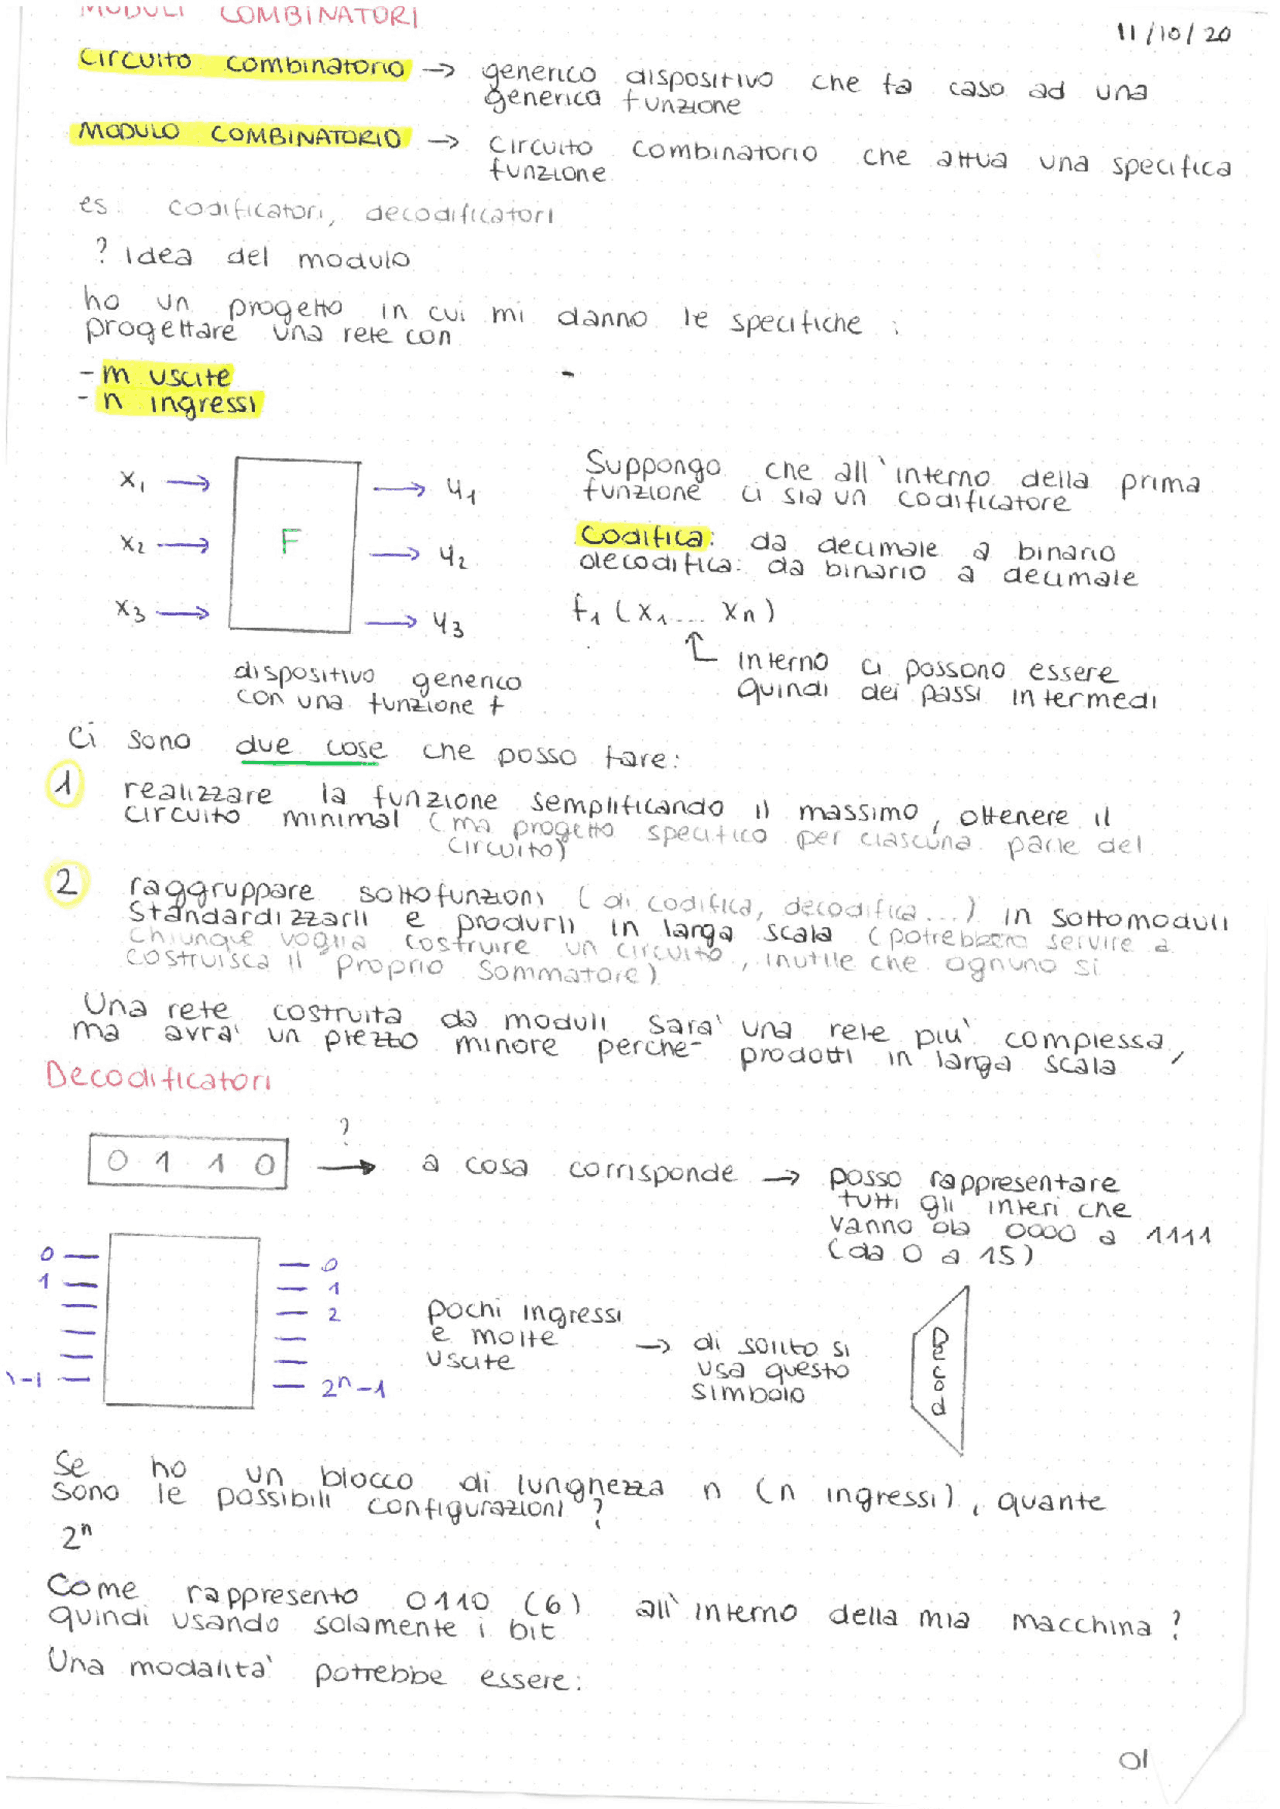 MODULI COMBINATORI
11/10/20
Circuito combinatorio → generico dispositivo che fa caso ad una
generica funzione
MODULO COMBINATORIO → circuito combinatorio che attua una specifica
funzione
es. codificatori, decodificatori
? idea del modulo
ho un progetto in cui mi danno le specifiche :
progettare una rete con
- m uscite
- n ingressi
Suppongo che all'interno della prima
funzione ci sia un codificatore
Codifica: da decimale a binario
decodifica: da binario a decimale
f1 (x1.... xn)
interno ci possono essere
quindi dei passi intermedi
x1 → → y1
x2 → F → y2
x3 → → y3
dispositivo generico
con una funzione f
Ci sono due cose che posso fare:
1 realizzare la funzione semplificando il massimo, ottenere il
circuito minimal (ma progetto specifico per ciascuna parte del
circuito)
2 raggruppare sottofunzioni (di codifica, decodifica...) in sottomoduli
standardizzarli e produrli in larga scala (potrebbero servire a
chiunque voglia costruire un circuito, inutile che ognuno si
costruisca il proprio sommatore)
Una rete costruita da moduli sara' una rete piu' complessa,
ma avra' un prezzo minore perche- prodotti in larga scala
Decodificatori
0 1 1 0 ? → a cosa corrisponde → posso rappresentare
tutti gli interi che
vanno da 0000 a 1111
(da 0 a 15)
0 0
1 1
2
n-1 2ⁿ-1
pochi ingressi
e molte
uscite
→ di solito si
usa questo
simbolo
Decod
Se ho un blocco di lunghezza n (n ingressi), quante
sono le possibili configurazioni?
2ⁿ
Come rappresento 0110 (6) all'interno della mia macchina?
quindi usando solamente i bit
Una modalita' potrebbe essere:
01